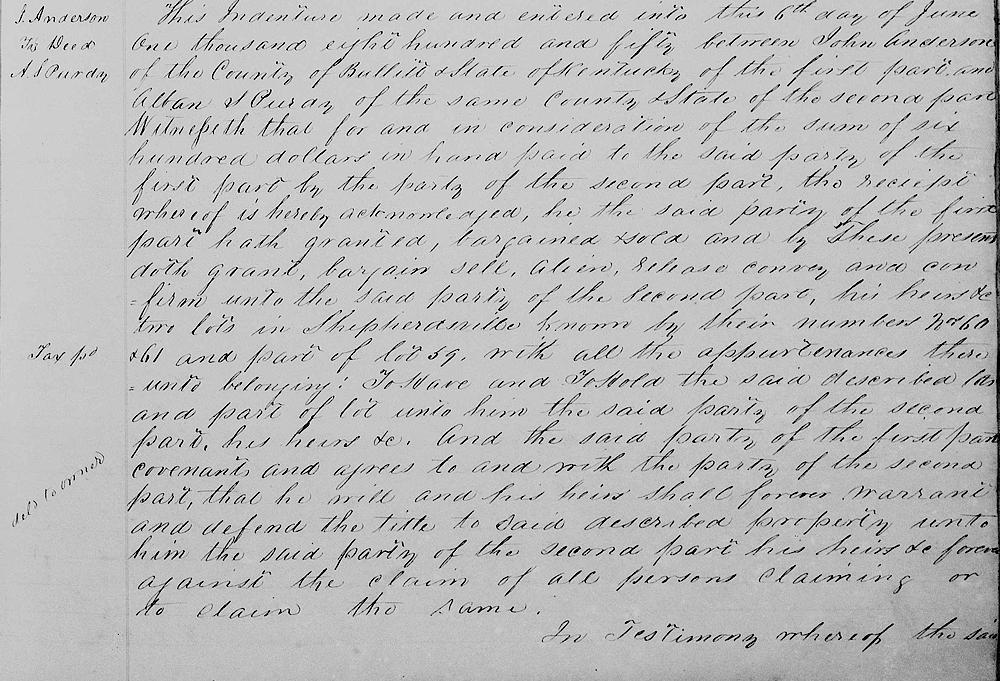 J. Anderson
To} Deed
A. S Purdy
This Indenture made and entered into this 6th day of June
One thousand eight hundred and fifty between John Anderson
of the County of Bullitt & State of Kentucky of the first part and
Alban S Purdy of the same County & State of the second part
Witnesseth that for and in consideration of the sum of six
hundred dollars in hand paid to the said party of the
first part by the party of the second part, the reciept
whereof is hereby acknowledged, he the said party of the first
part hath granted, bargained & sold and by These present
doth grant, bargain sell, alien, release convey and con
=firm unto the said party of the second part, his heirs &c
two lots in Shepherdsville known by their numbers No 60
& 61 and part of lot 59. with all the appurtenances there
=unto belonging: To Have and To Hold the said described lots
and part of lot unto him the said party of the second
part, his heirs &c. And the said party of the first part
covenants and agrees to and with the party of the second
part, that he will and his heirs shall forever warrant
and defend the title to said described property unto
him the said party of the second part his heirs &c forever
against the claim of all persons claiming or
to claim the same.
In Testimony whereof the said
Tax pd
deld to owner